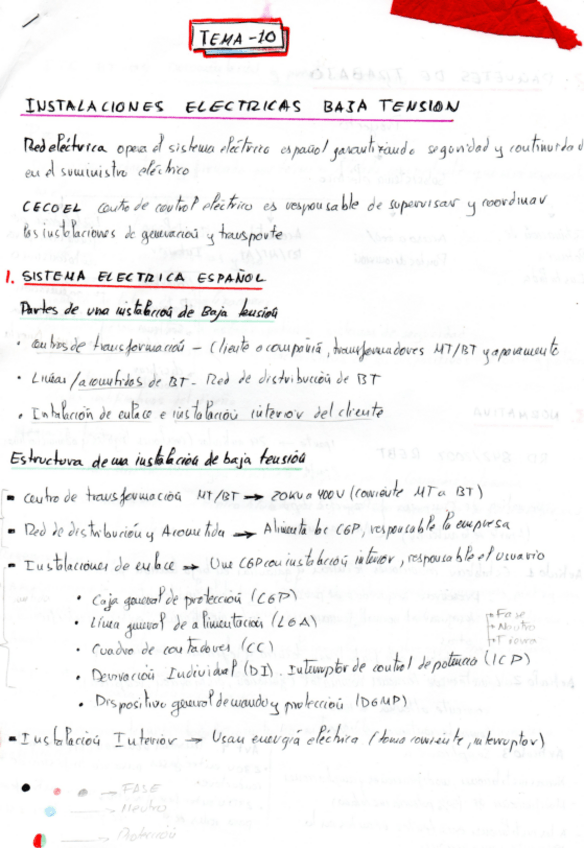 TEMA-10
INSTALACIONES ELECTRICAS BAJA TENSION
Red eléctrica opera el sistema eléctrico español garantizando seguridad y continuidad
en el suministro eléctrico
CECOEL centro de control eléctrico es responsable de supervisar y coordinar
las instalaciones de generación y transporte
1. SISTEMA ELECTRICA ESPAÑOL
Partes de una instalación de Baja tensión
• Centros de transformación - Cliente o compañía, transformadores MT/BT y aparamenta
• Líneas/acometidas de BT - Red de distribución de BT
• Intalación de enlace e instalación interior del cliente
Estructura de una instalación de baja tensión
- Centro de transformación MT/BT → 20KV a 400V (convierte MT a BT)
- Red de distribución y Acometida → Alimenta las CGP, responsable la empresa
- Instalaciones de enlace → Une CGP con instalación interior, responsable el usuario
• Caja general de protección (CGP)
• Línea general de alimentación (LGA)
• Cuadro de contadores (CC)
• Derivación Individual (DI). Interruptor de control de potencia (ICP)
• Dispositivo general de mando y protección (DGMP)
→ Fase
→ Neutro
→ Tierra
- Instalación Interior → Usan energía eléctrica (toma corriente, interruptor)
→ FASE
Neutro
Protección